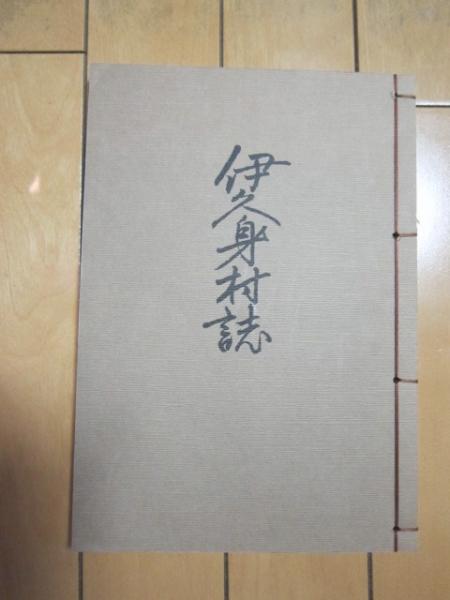 伊久身村誌